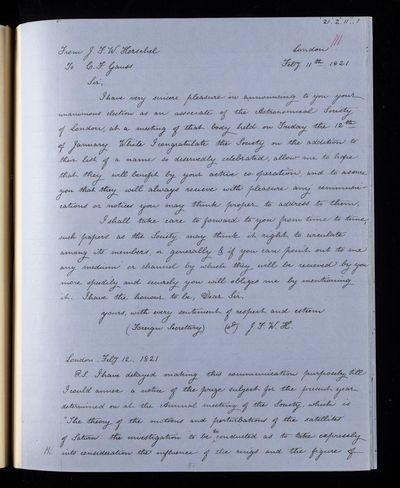 21.2.11..1
From J. F. W. Herschel London
To C. F. Gauss. Feby 11th 1821
Sir,
I have very sincere pleasure in announcing to you your
unanimous election as an associate of the Astronomical Society
of London, at a meeting of that body held on Friday the 12th
of January. While I congratulate the Society on the addition to
their list of a name so deservedly celebrated, allow me to hope
that they will benefit by your active co-operation, and to assure
you that they will always receive with pleasure any communi-
cations or notices you may think proper to address to them.
I shall take care to forward to you from time to time,
such papers as the Society may think it right, to circulate
among its members, or generally & if you can point out to me
any medium or channel by which they will be received by you
more speedily and securely you will oblige me by mentioning
it. I have the honour to be, Dear Sir,
yours, with every sentiment of respect and esteem
(Foreign Secretary) J. F. W. H.
London. Feby 12.. 1821
P.S. I have delayed making this communication purposely till
I could annex a notice of the prize subject for the present year
determined on at the Annual meeting of the Society, which is
"The theory of the motions and perturbations of the satellites
of Saturn the investigation to be so conducted as to take expressly
into consideration the influence of the rings and the figure of